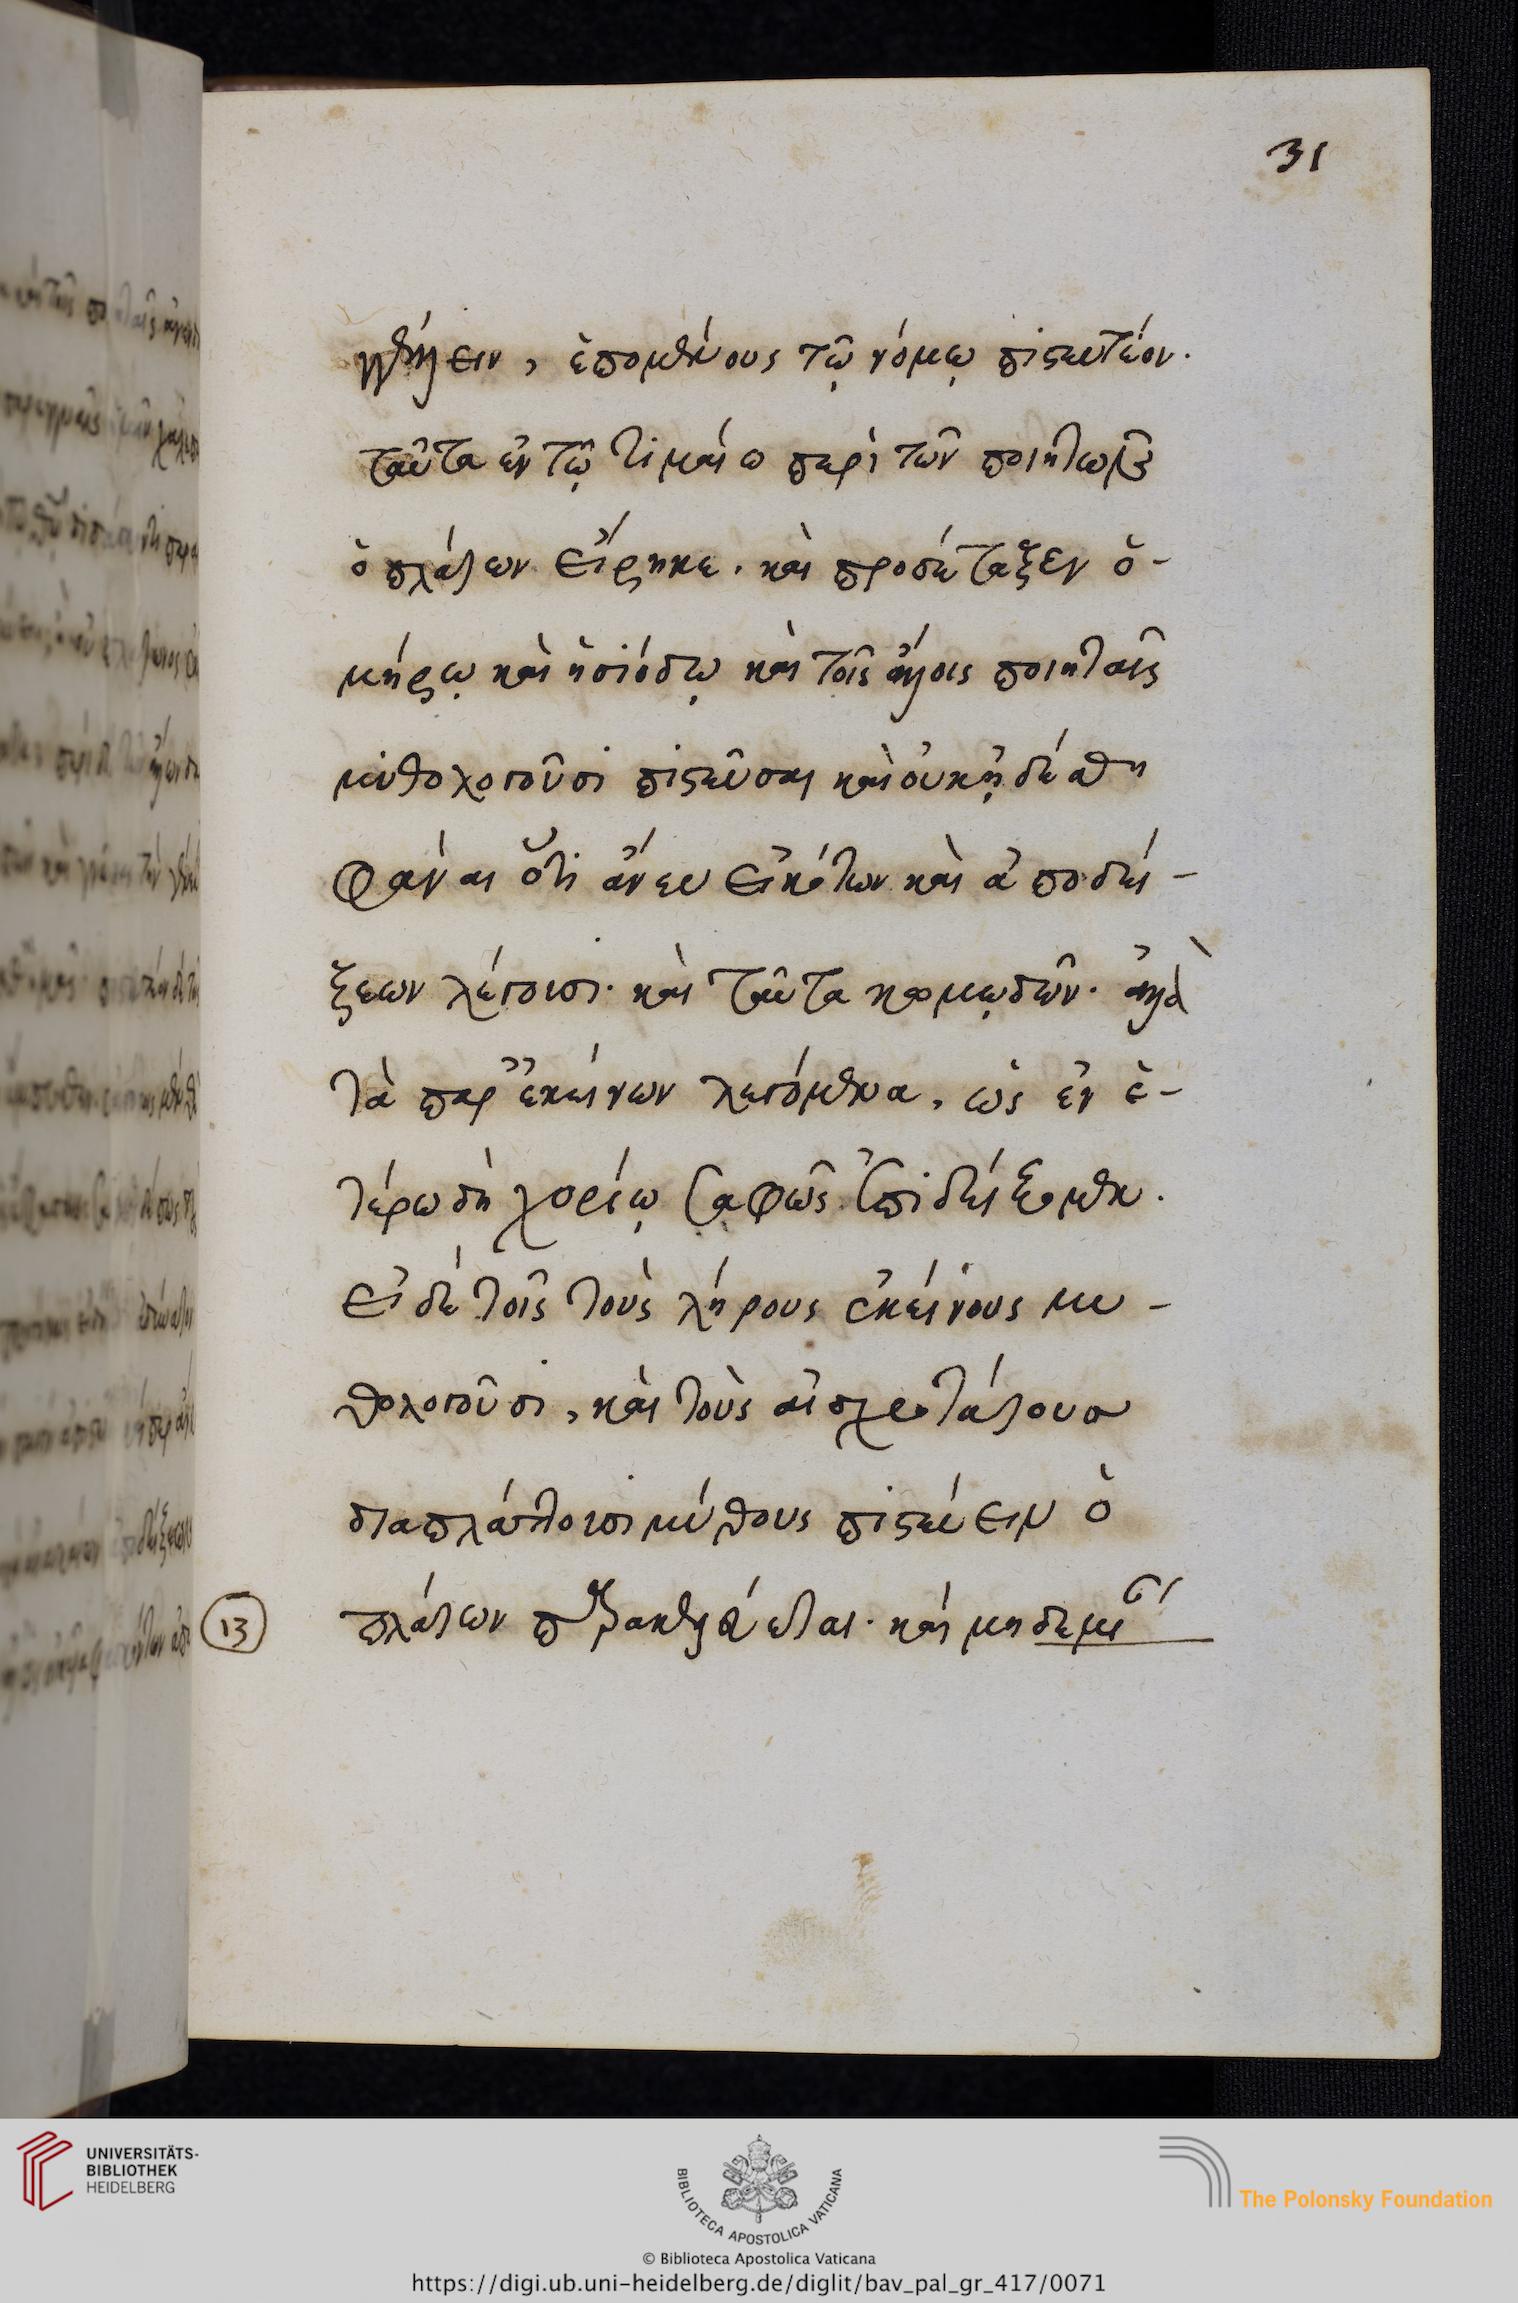 31
γγέλλειν, ἑπομένους τῷ νόμῳ πιστευτέον.
ταῦτα ἐν τῷ τιμαίω περὶ τῶν ποιητῶν
ὁ πλάτων εἴρηκε. καὶ προσέταξεν ὁ-
μήρῳ καὶ ἡσιόδῳ καὶ τοῖς ἄλλοις ποιηταῖς
μυθολογοῦσι πιστεῦσαι καὶ οὐκ ᾐδέσθη
φάναι ὅτι ἄνευ εἰκότων καὶ ἀποδεί-
ξεων λέγουσι. καὶ ταῦτα κομῳδῶν. ἀλλὰ
τὰ παρ᾽ ἐκείνων λεγόμενα, ὡς ἐν ἑ-
τέρω δὴ χορίῳ σαφῶς ἐπιδείξομεν.
εἰ δὲ τοῖς τοὺς λήρους ἐκείνους μυ-
θολογοῦσι, καὶ τοὺς αἰσχροτάτους
διαπλάττουσι μύθους πιστεύειν ὁ
13 πλάτων παρακελεύεται. καὶ μηδεμί
UNIVERSITÄTS-
BIBLIOTHEK
HEIDELBERG
BIBLIOTECA APOSTOLICA VATICANA
The Polonsky Foundation
© Biblioteca Apostolica Vaticana
https://digi.ub.uni-heidelberg.de/diglit/bav_pal_gr_417/0071